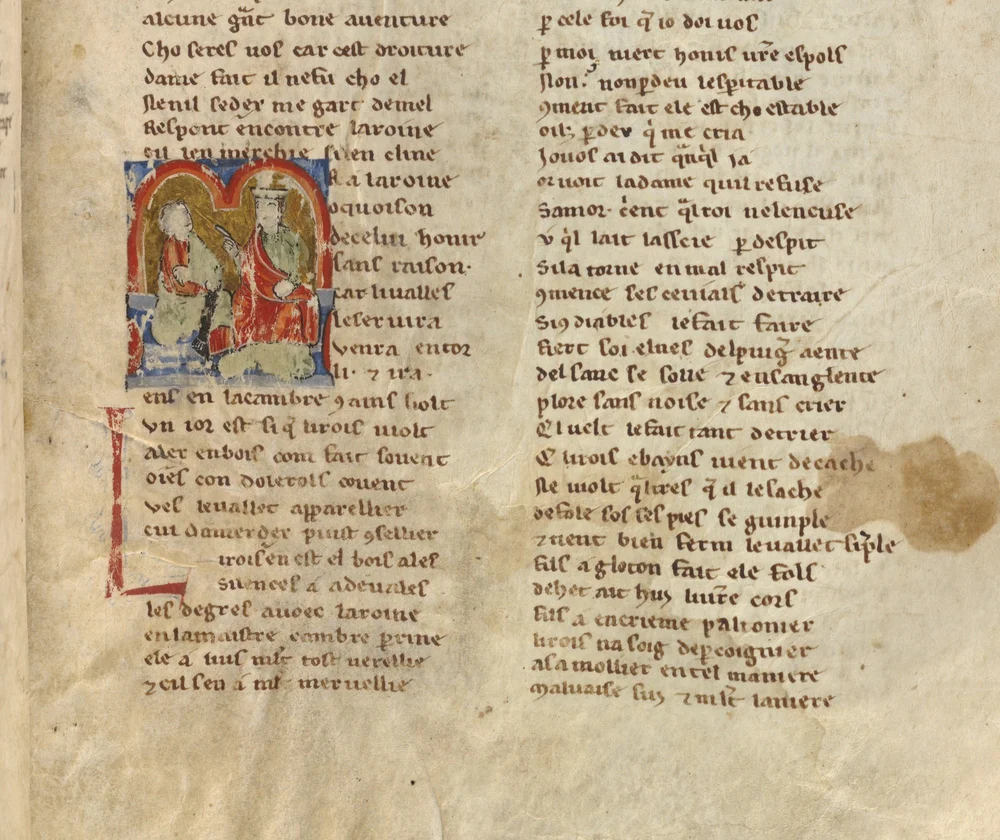 alcune gnt bone auenture
Cho seres uos car cest droiture
dame fait il nefu cho el
Se nil seder me gart demel
Respont encontre laroine
cil len merchie silen cline
R a laroine
oquoison
decelui honir
sans raison·
car liuallés
leseruira
venra encor
li· ⁊ ira·
ens en lacambre ꝯains solt
vn ior est si q̃ lirois uiolt
aler enbois com fait souent
oiés con dolerols couent
vet leuallet apparellier
cui damerdex puist ꝯsellier
irois en est el bois alés
Silences a adeualés
les degrés auoec laroine
enlamaistre cambre ꝑrine
ele a lius mlt tost verellie
⁊cil sen a mlt meruellie
ꝑ cele foi q̃ io doi uos
ꝑ moi niert honis vr̃e espols
Non· nonꝑdeu lespitable
ꝯment fait ele est cho estable
oil, ꝑdex q̇ me cria
Jouos ai dit q̃nq̃l ia
or uoit ladame quil refuse
Samor· cent q̃ltoi nelencuse
v q̇l lait lassere ꝑ despit
Sila torne en mal respit
ꝯmence ses ceuials detraire
Siꝯ diables lefait faire
Fiert soi elnés delpuig̃ aente
del sanc se solle ⁊ ensanglente
plore sans noise ⁊ sans crier
El uelt lefait tant detrier
C lirois ebayns uient decache
Ne uiolt q̃ltres q̃ il lesache
defole sos ses piés se guinple
⁊tient bien fermi leuallet siple
fils a gloton fait ele fols
dehet ait huj uirre cors
fils a encrieme paltonier
lirois na soig deꝑcoignier
asa mollier entel maniere
Malvaise suj ⁊ mlt laniere